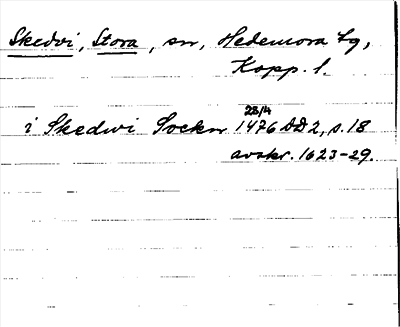 Skedvi, Stora, sn, Hedemora tg,
Kopp. l.
28/4
i Skedwi Sockn 1476 DD2, s. 18
avskr. 1623-29.